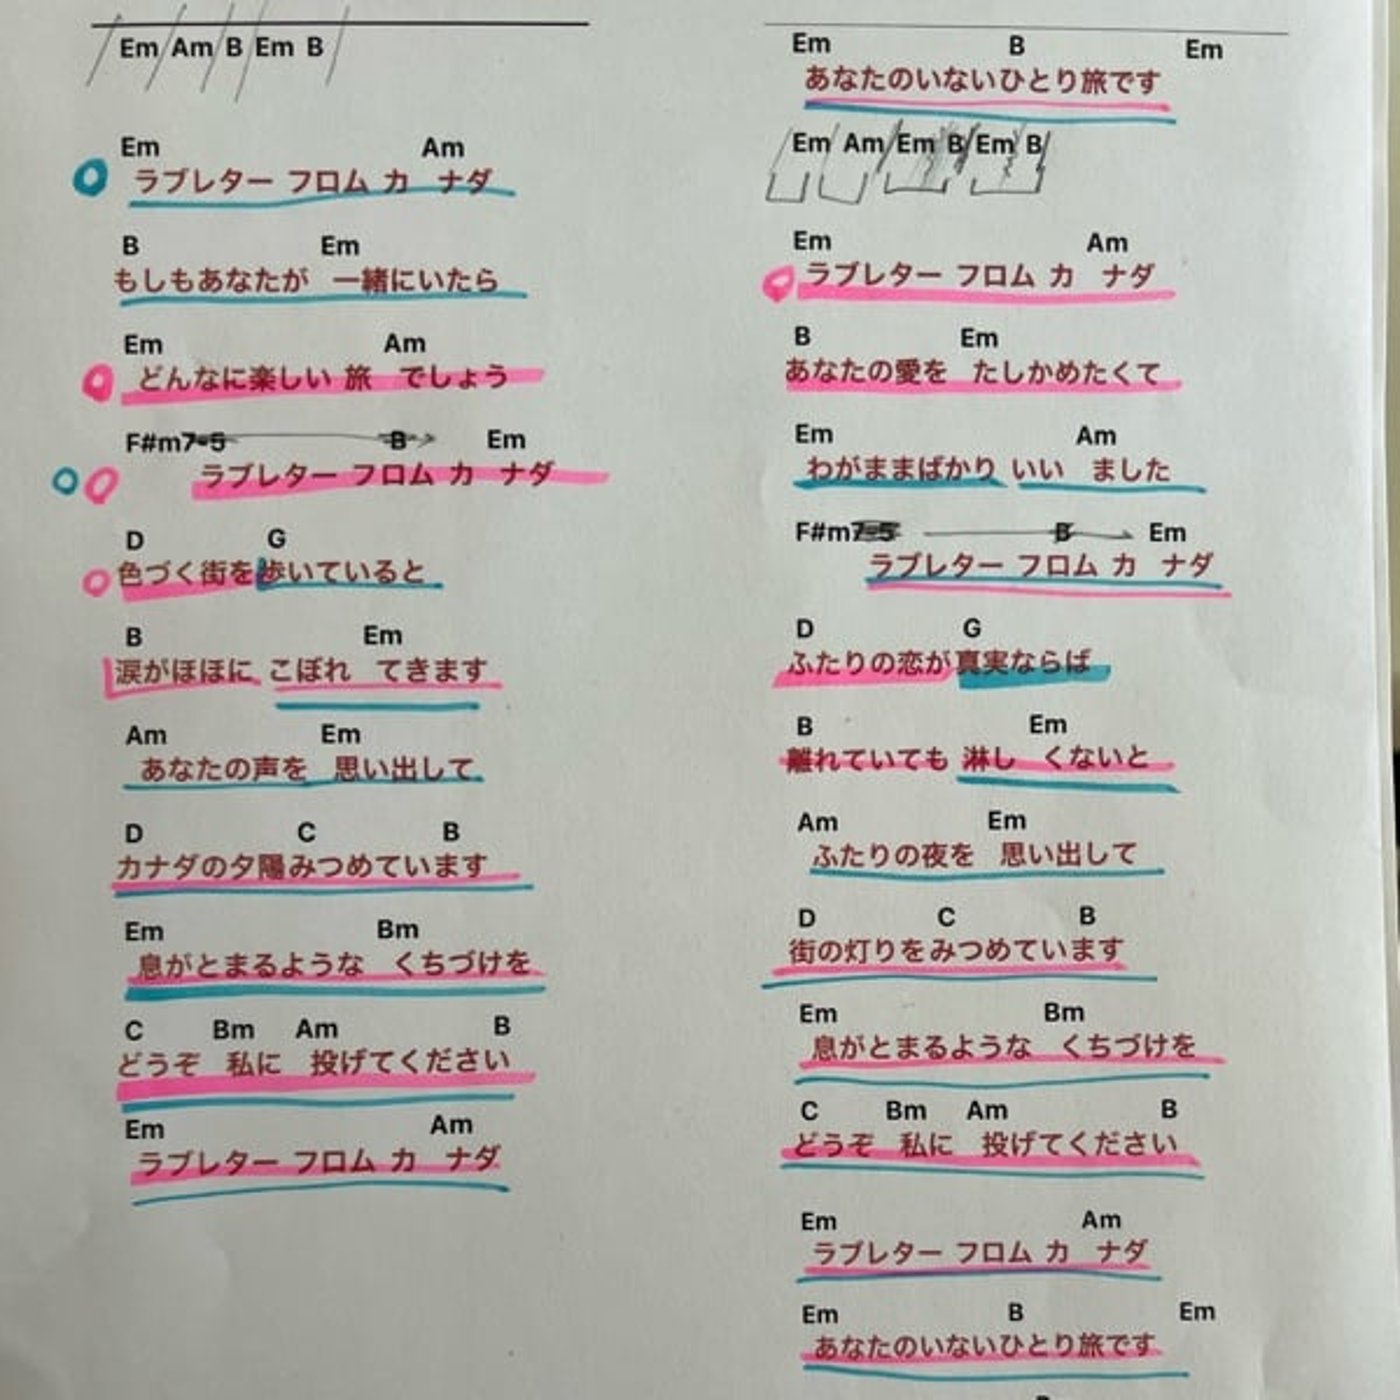 Em Am B Em B
Em Am
ラブレター フロム カ ナダ
B Em
もしもあなたが 一緒にいたら
Em Am
どんなに楽しい 旅 でしょう
F#m7-5 B Em
ラブレター フロム カ ナダ
D G
色づく街を 歩いていると
B Em
涙がほほに こぼれ てきます
Am Em
あなたの声を 思い出して
D C B
カナダの夕陽みつめています
Em Bm
息がとまるような くちづけを
C Bm Am B
どうぞ 私に 投げてください
Em Am
ラブレター フロム カ ナダ
Em B Em
あなたのいないひとり旅です
Em Am Em B Em B
Em Am
ラブレター フロム カ ナダ
B Em
あなたの愛を たしかめたくて
Em Am
わがままばかり いい ました
F#m7-5 B Em
ラブレター フロム カ ナダ
D G
ふたりの恋が 真実ならば
B Em
離れていても 淋し くないと
Am Em
ふたりの夜を 思い出して
D C B
街の灯りをみつめています
Em Bm
息がとまるような くちづけを
C Bm Am B
どうぞ 私に 投げてください
Em Am
ラブレター フロム カ ナダ
Em B Em
あなたのいないひとり旅です